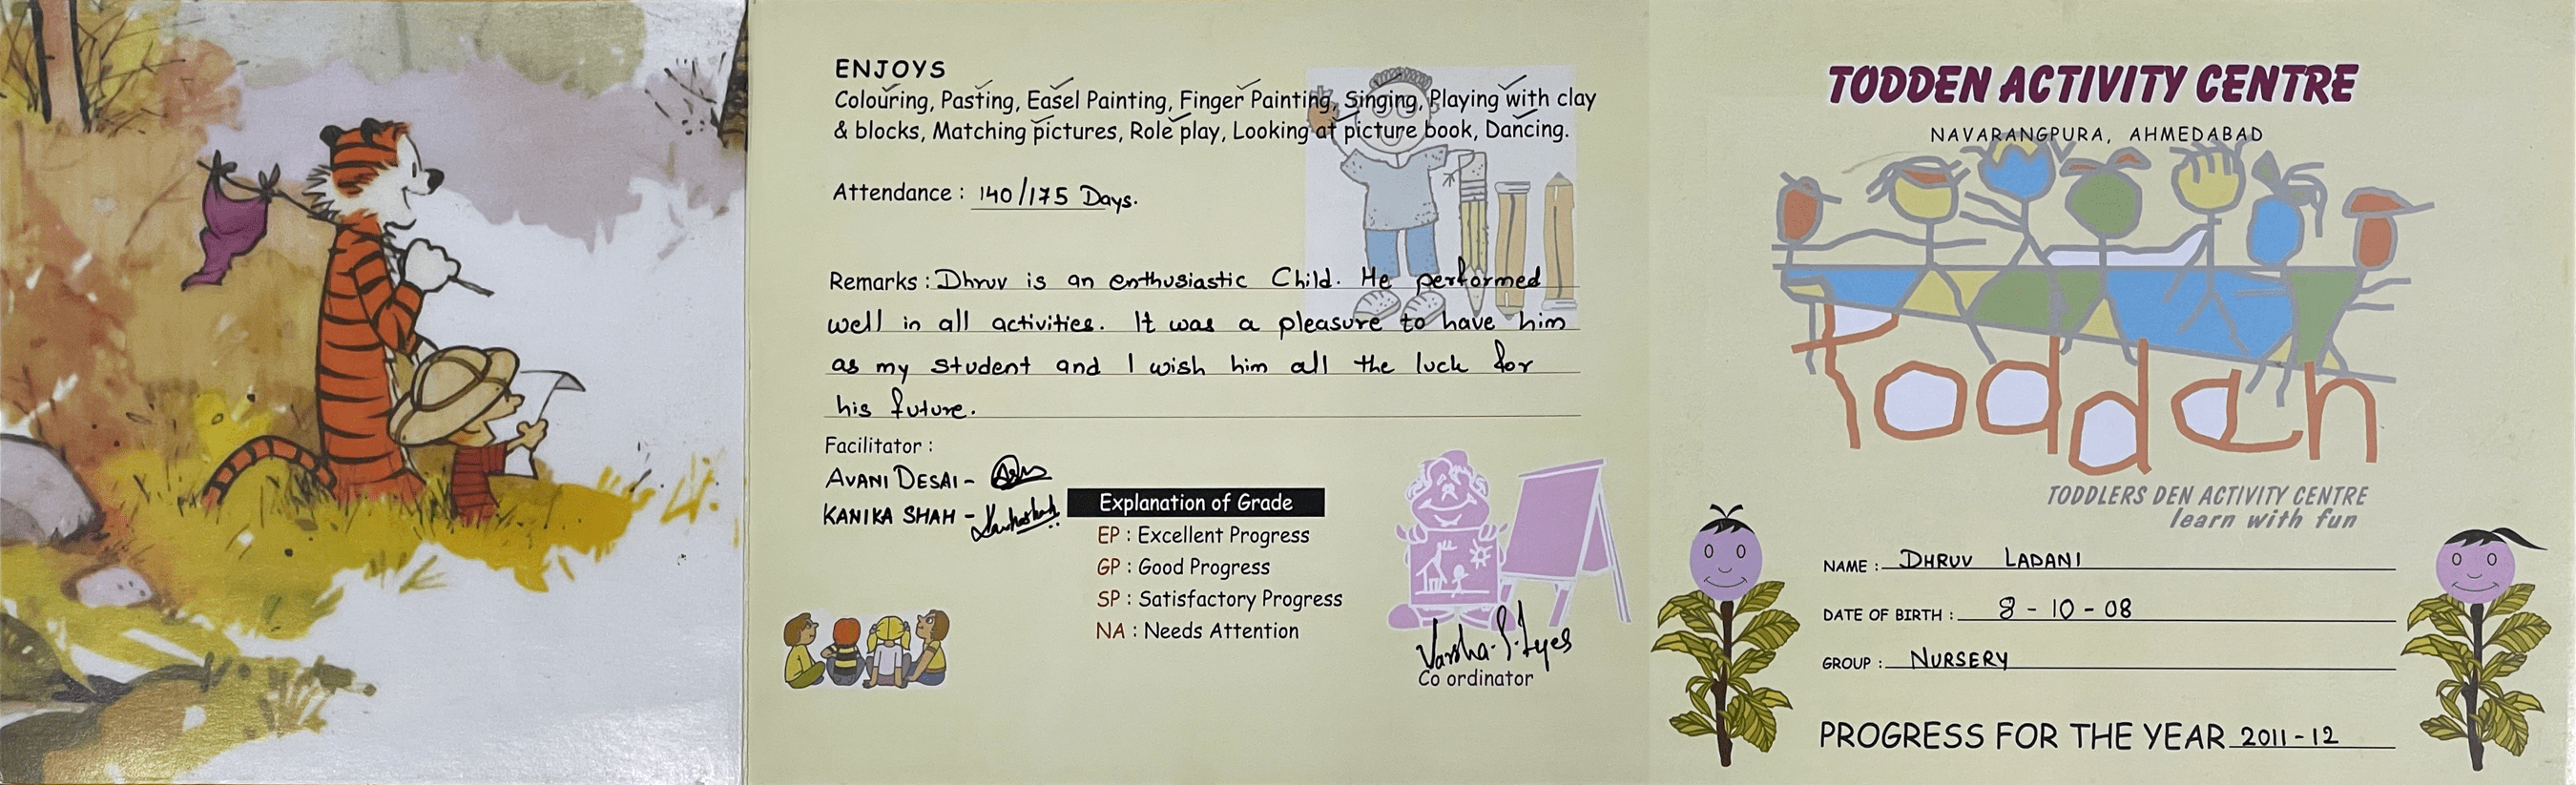 ENJOYS
Colouring, Pasting, Easel Painting, Finger Painting, Singing, Playing with clay
& blocks, Matching pictures, Role play, Looking at picture book, Dancing.
Attendance : 140/175 Days.
Remarks : Dhruv is an enthusiastic Child. He performed
well in all activities. It was a pleasure to have him
as my student and I wish him all the luck for
his future.
Facilitator :
AVANI DESAI -
KANIKA SHAH -
Explanation of Grade
EP : Excellent Progress
GP : Good Progress
SP : Satisfactory Progress
NA : Needs Attention
Co ordinator
TODDEN ACTIVITY CENTRE
NAVARANGPURA, AHMEDABAD
Todden
TODDLERS DEN ACTIVITY CENTRE
learn with fun
NAME : DHRUV LADANI
DATE OF BIRTH : 8 - 10 - 08
GROUP : NURSERY
PROGRESS FOR THE YEAR 2011-12